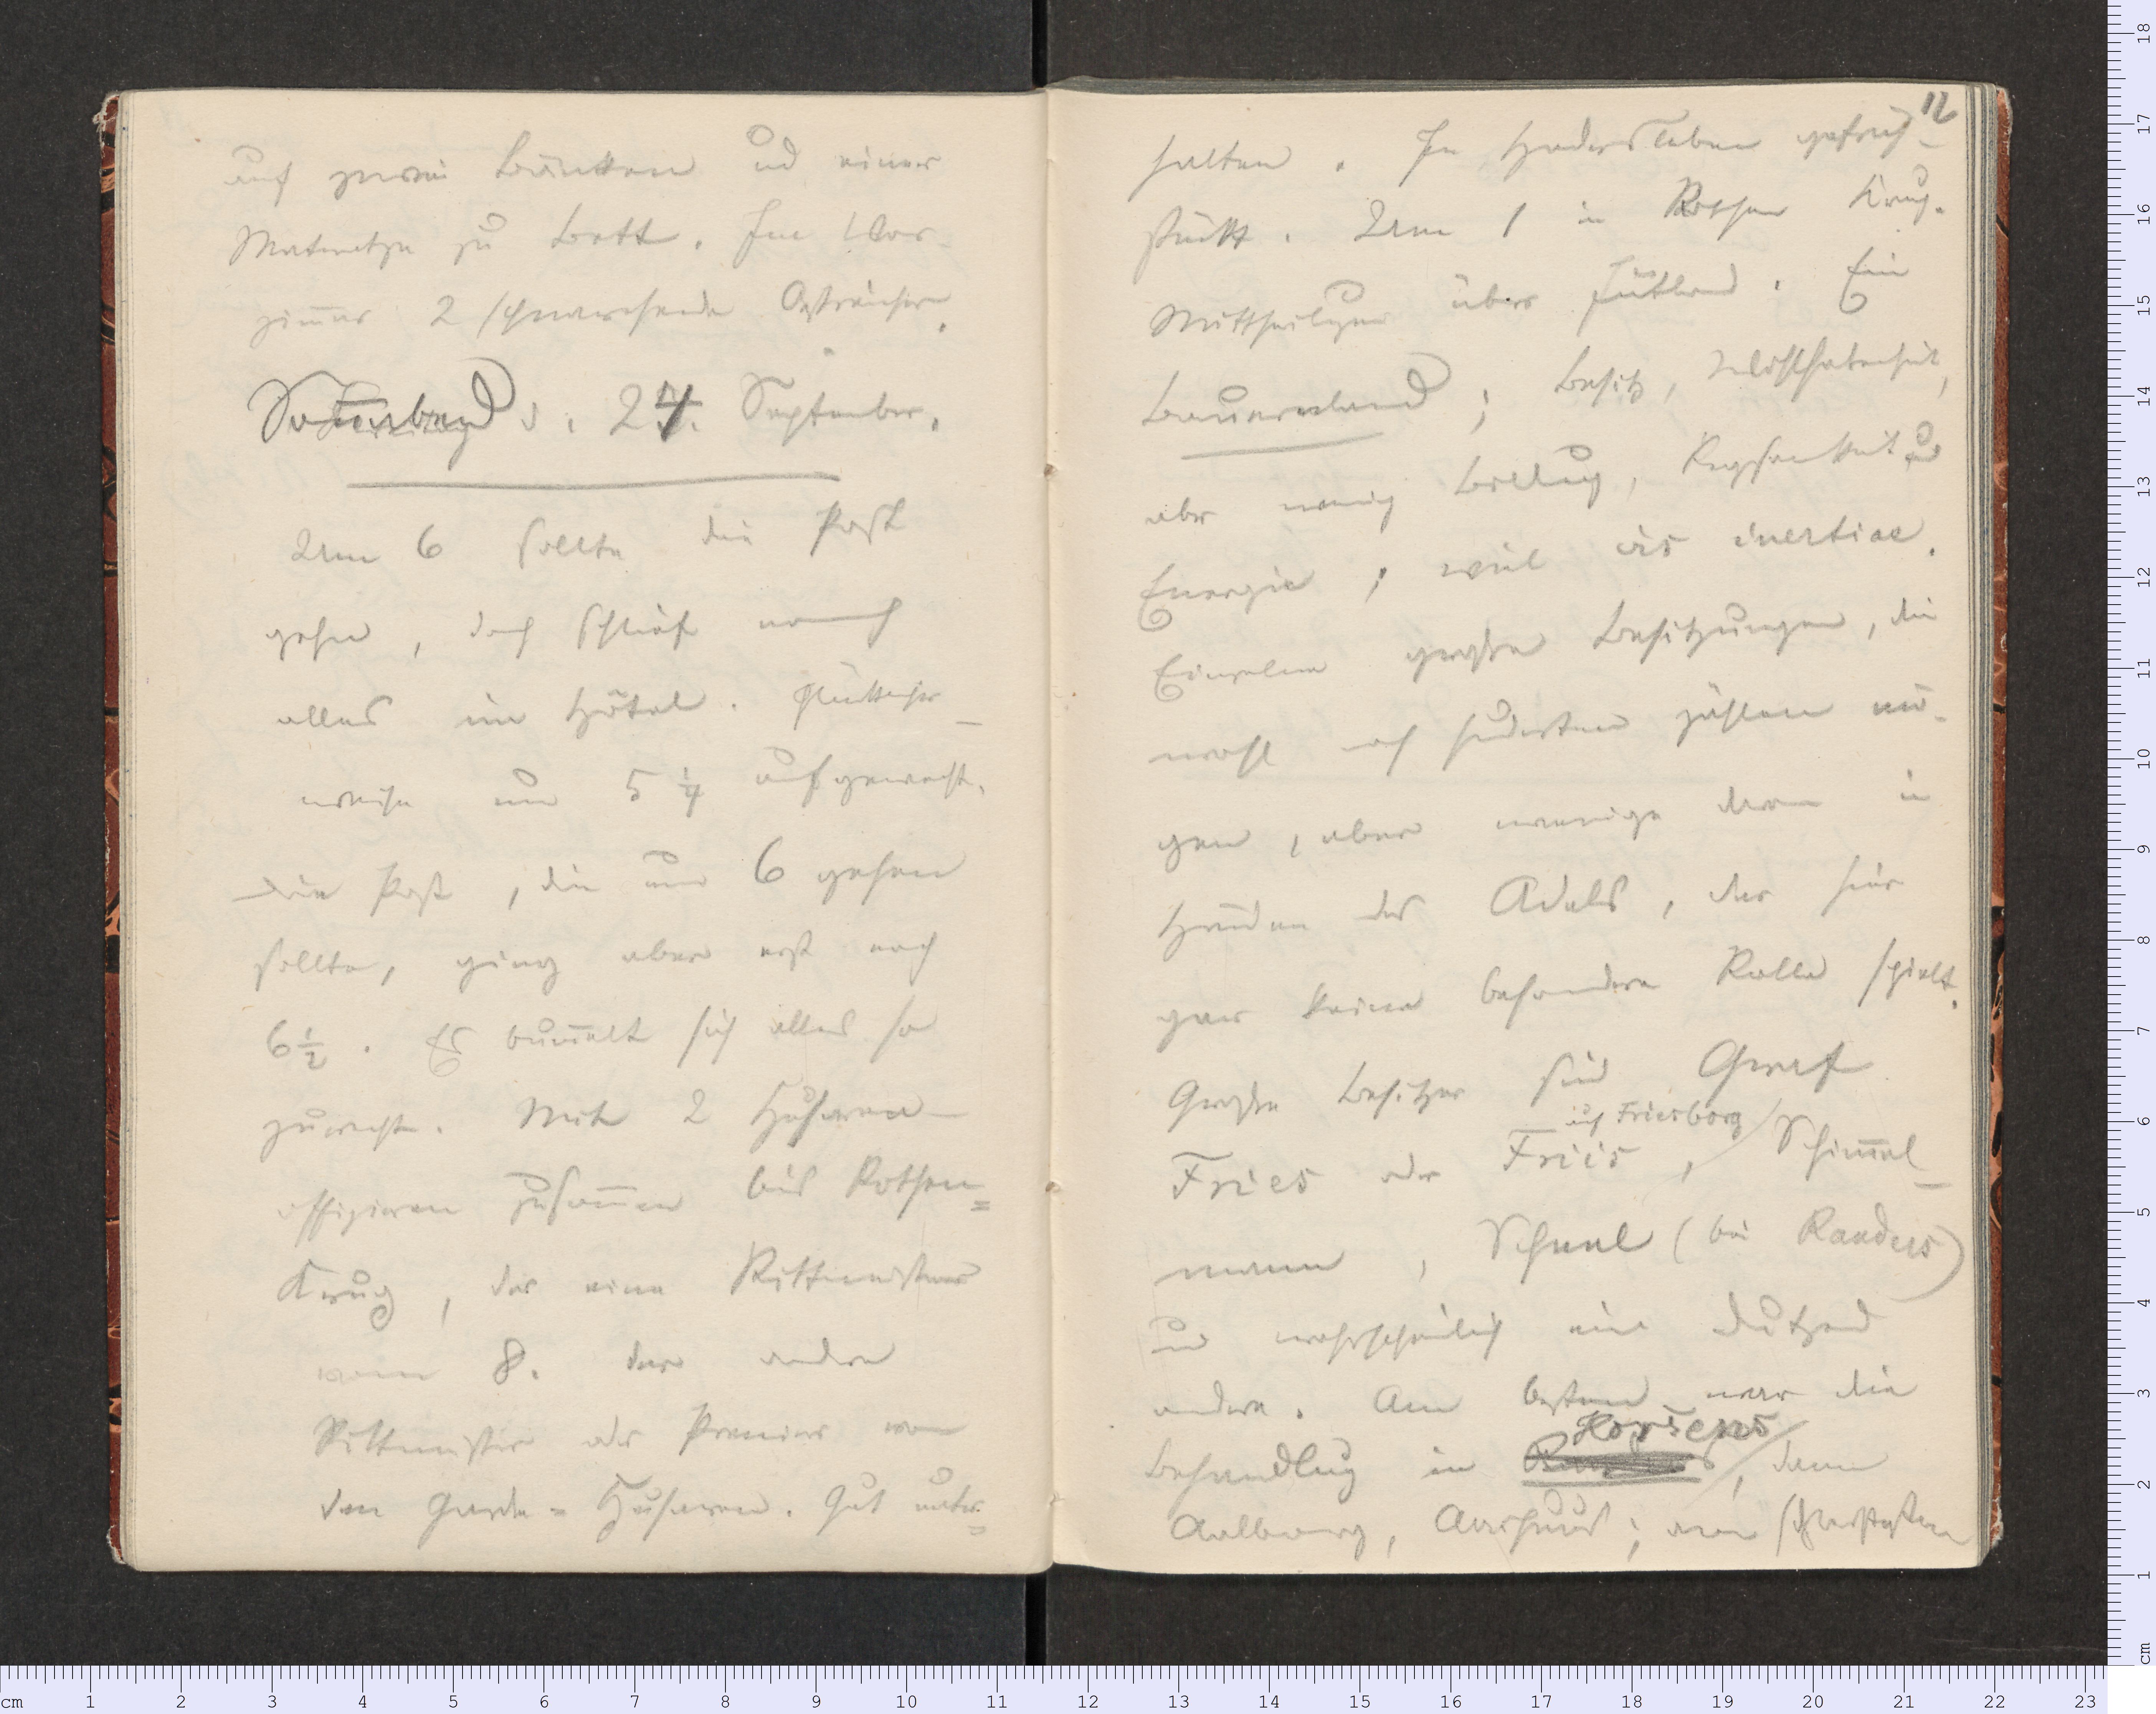 auf zwei Bänken und einer
Matratze zu Bett. Im Vor-
zimmer 2 schnarchende Oestreicher.
Sonnabend d. 24. September.
Um 6 sollte die Post
gehn, doch schlief noch
alles im Hôtel. Glücklicher-
weise um 5 1/4 aufgewacht.
Die Post, die um 6 gehen
sollte, ging aber erst nach
6 1/2. Es bummelt sich alles so
zurecht. Mit 2 Husaren-
offizieren zusammen bis Rothen=
Krug, der eine Rittmeister
vom 8. der andre
Rittmeister oder Premier von
den Garde=Husaren. Gut unter=
12
halten. In Hadersleben gefrüh-
stückt. Um 1 in Rothen Krug.
Mittheilungen über Jütland. Ein
Bauernland; Besitz, Wohlhabenheit,
aber wenig Bildung, Regsamkeit und
Energie; viel vis inertiae.
Einzelne große Besitzungen, die
wohl nach hunderten zählen mö-
gen, aber wenige davon in
Händen des Adels, der hier
gar keine besondere Rolle spielt.
Große Besitzer sind Graf
auf Friesborg
Fries oder Friis, Schimmel-
mann, Scheel (bei Randers)
und wahrscheinlich ein Dutzend
andere. Am besten war die
Horsens
Behandlung in Randers, dann
Aalborg, Aarhuus; am schlechtesten